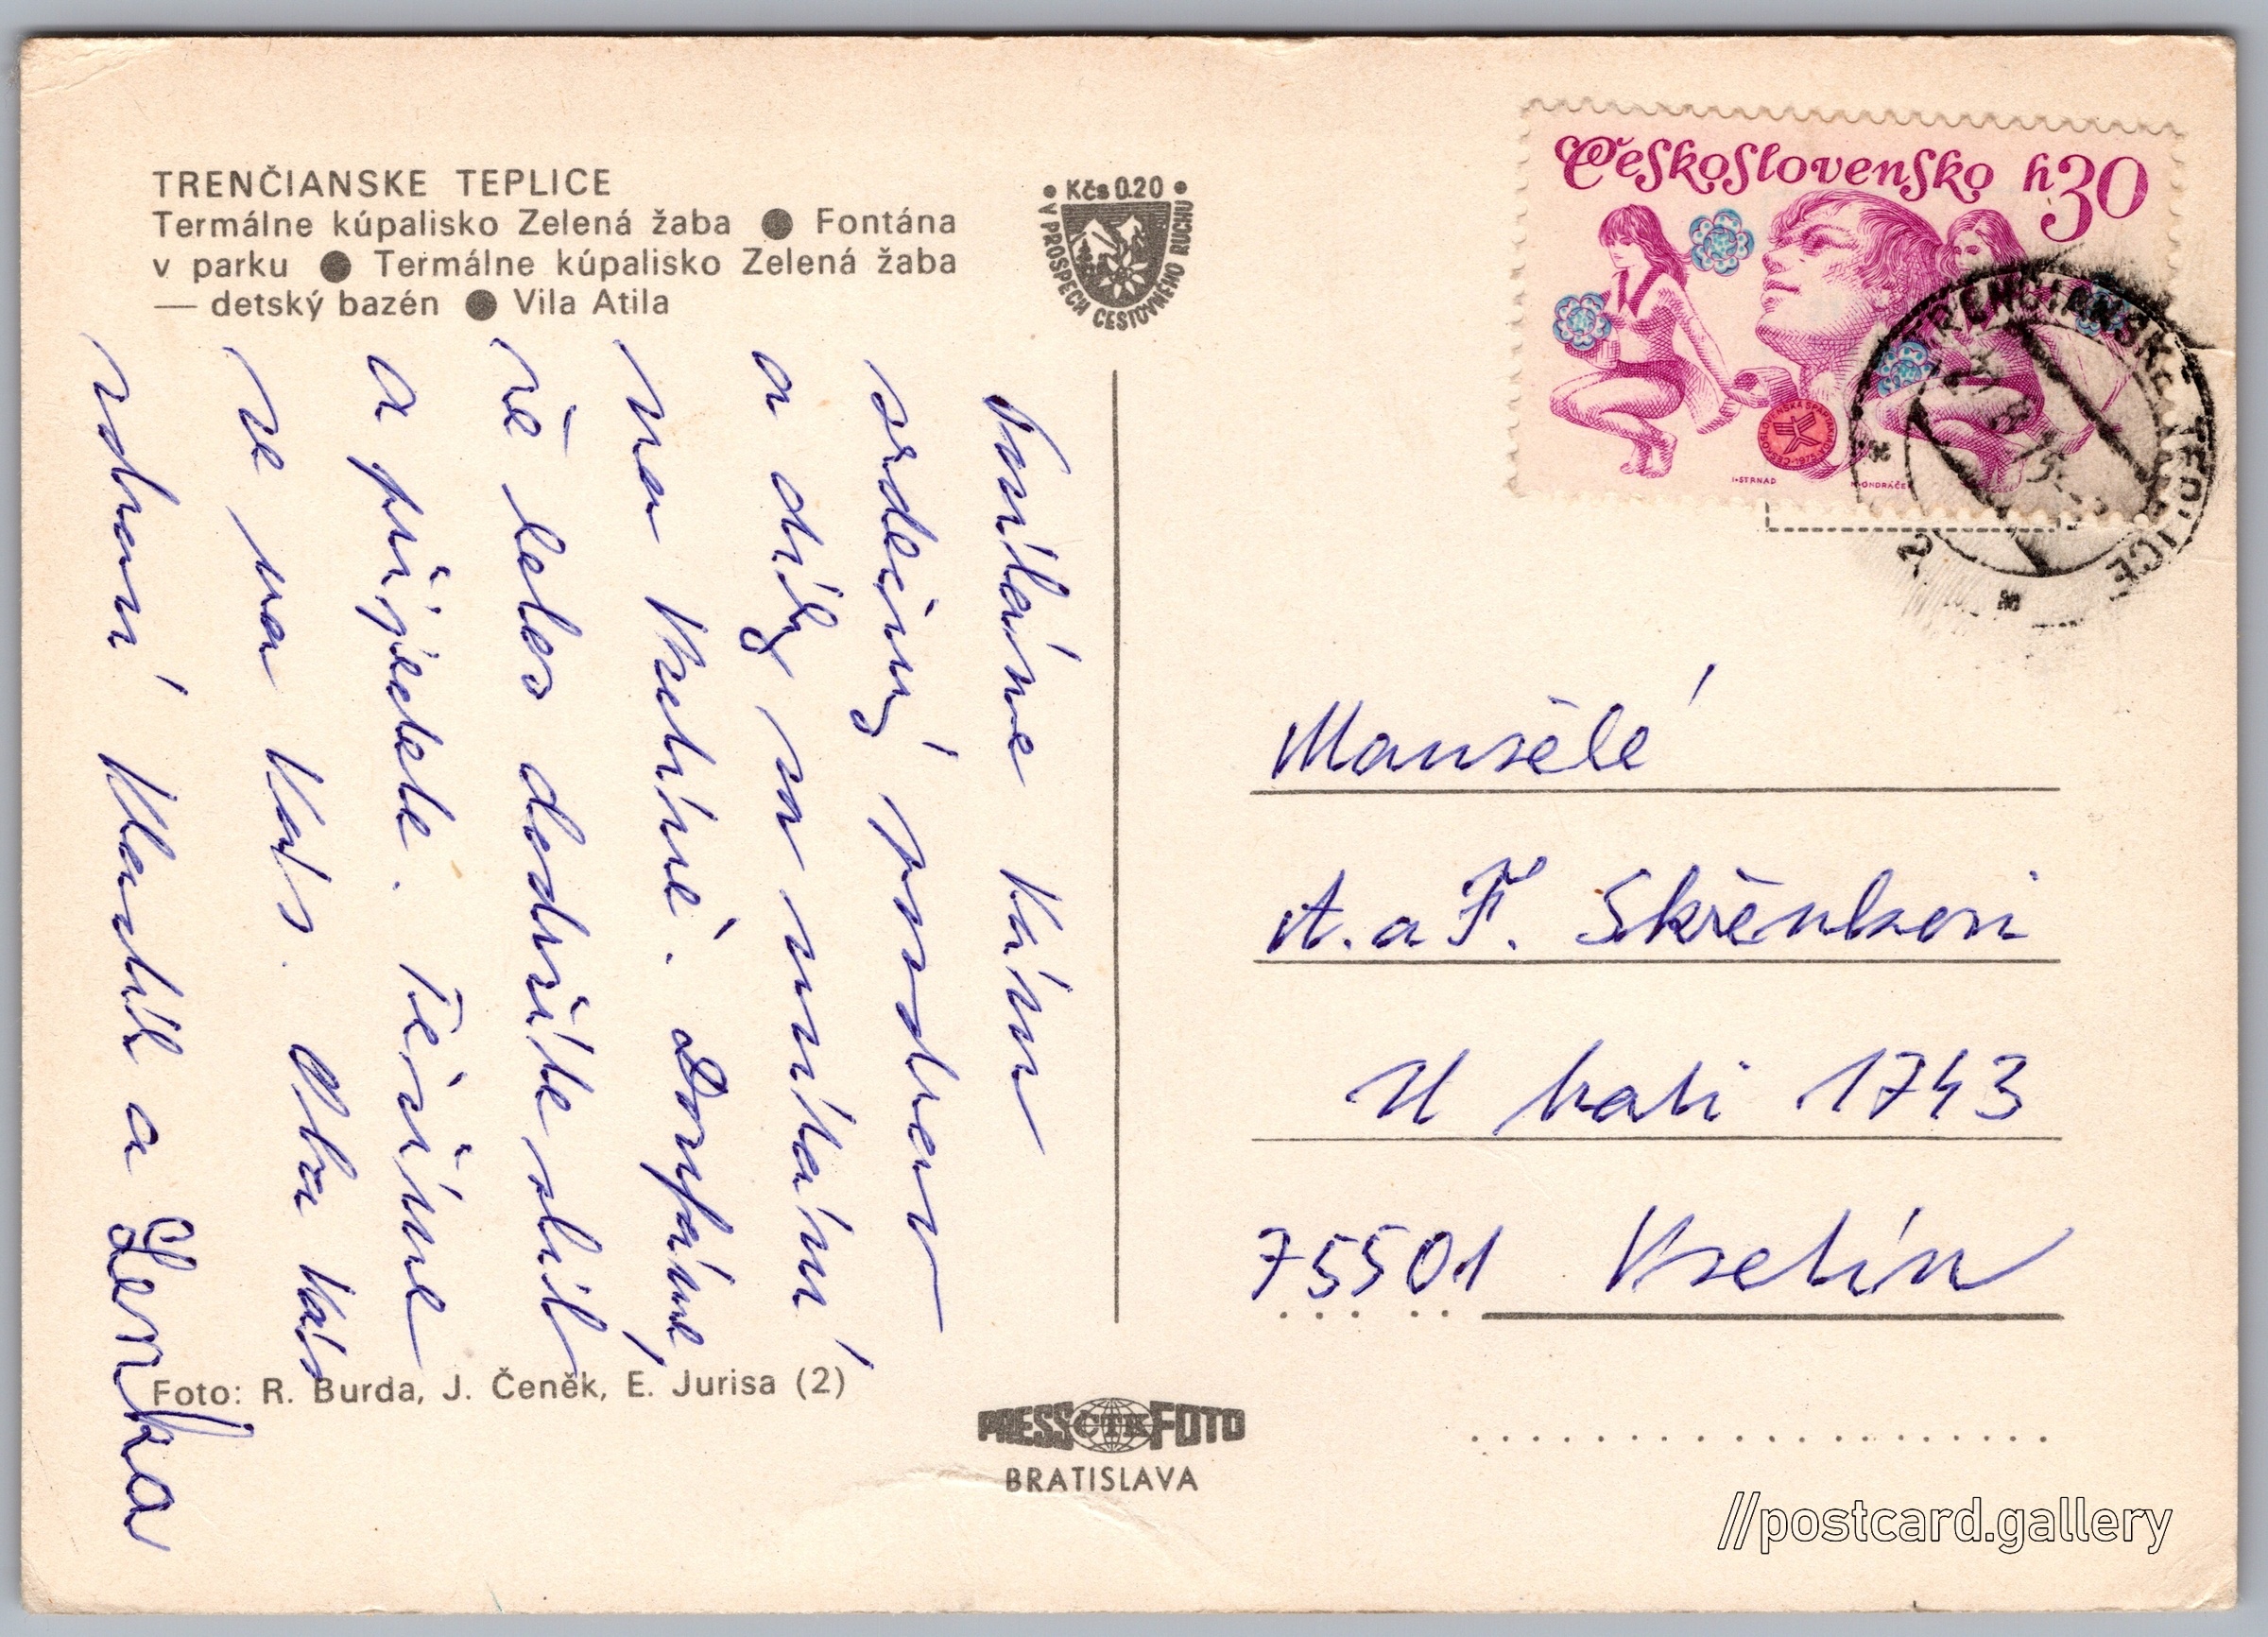 TRENČIANSKE TEPLICE
Termálne kúpalisko Zelená žaba ● Fontána
v parku ● Termálne kúpalisko Zelená žaba
— detský bazén ● Vila Atila
• Kčs 0.20 •
V PROSPECH CESTOVNÉHO RUCHU
Československo h30
ČESKOSLOVENSKÁ SPARTAKIÁDA 1975
I·STRNAD
ONDRÁČEK
TRENČIANSKE TEPLICE
2
Posíláme Vám
srdečný pozdrav
a díky za setkání
na Vsetíně. Doufáme
že letos dodržíte slib
a přijedete. Těšíme
se na Vás. Oba Vás
zdraví Vlastík a Lenka
Manželé
A. a F. Skřenkovi
U trati 1743
75501 Vsetín
Foto: R. Burda, J. Čeněk, E. Jurisa (2)
PRESS ČTK FOTO
BRATISLAVA
//postcard.gallery